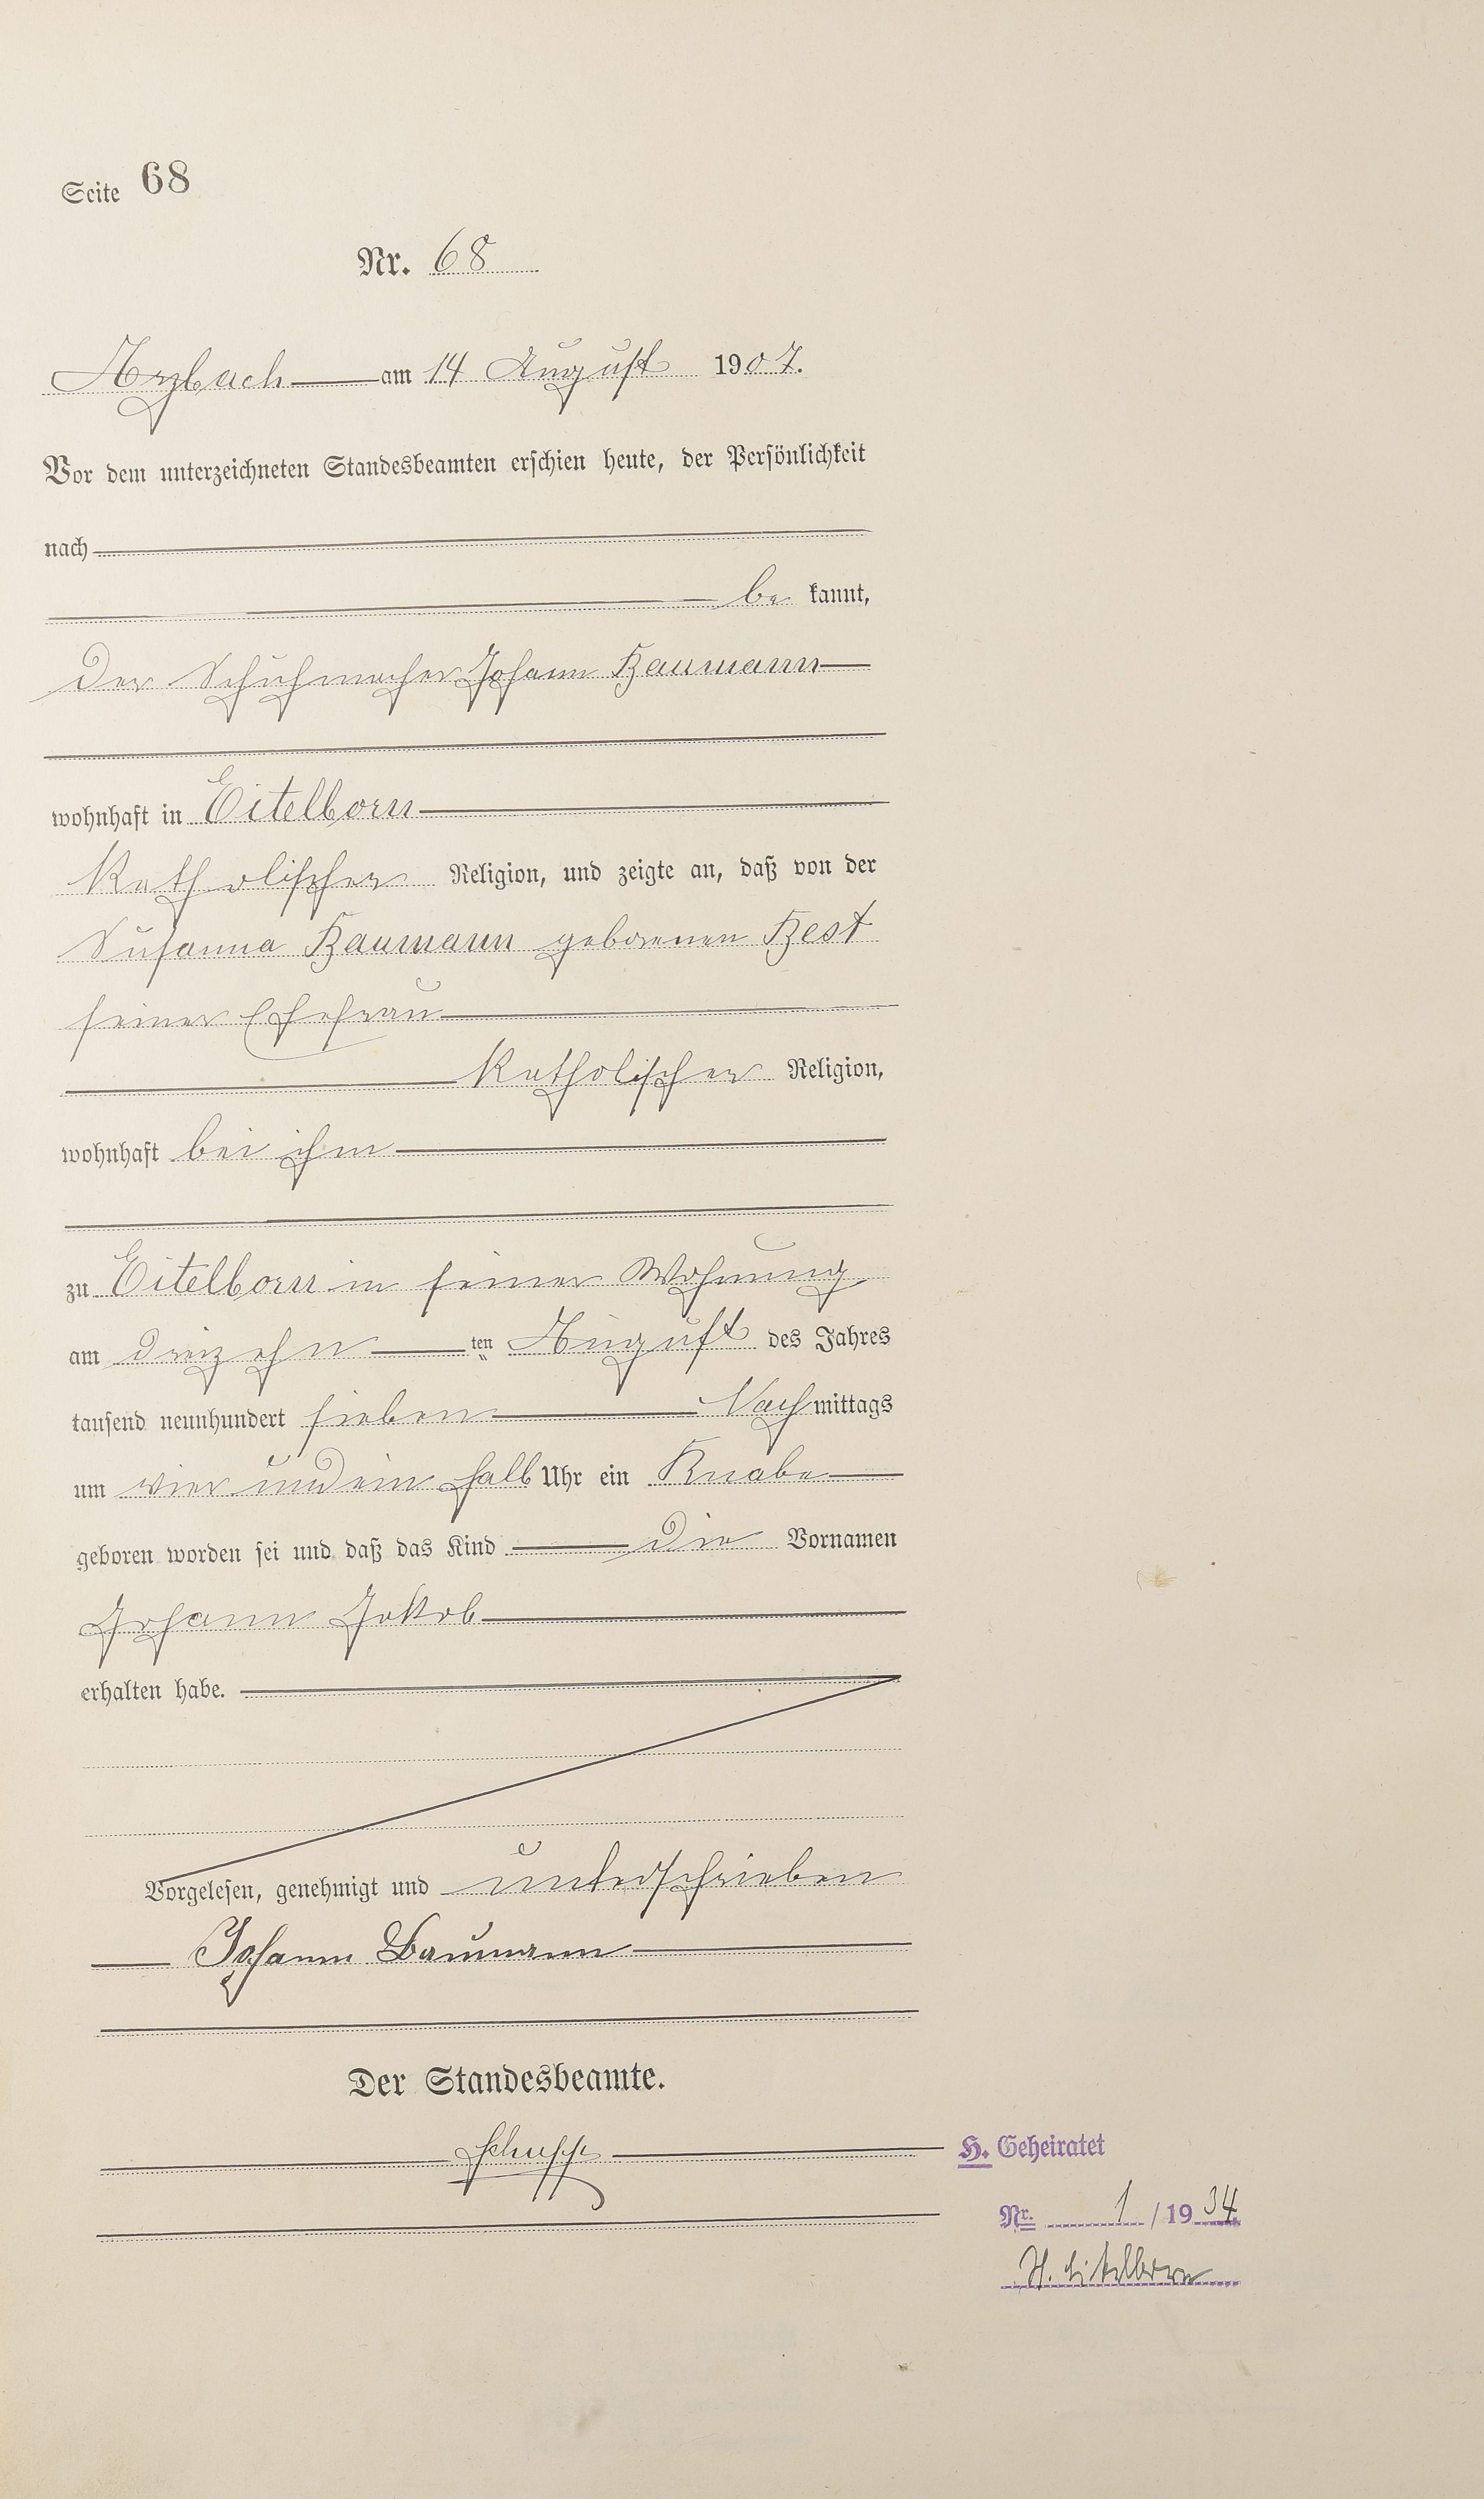 Seite 68
Nr. 68
Arzbach am 14 August 1907.
Vor dem unterzeichneten Standesbeamten erschien heute, der Persönlichkeit
nach
be kannt,
der Schuhmacher Johann Baumann
wohnhaft in Eitelborn
katholischer Religion, und zeigte an, daß von der
Susanna Baumann geborenen Best
seiner Ehefrau
katholischer Religion,
wohnhaft bei ihm
zu Eitelborn in seiner Wohnung
am dreizehn ten August des Jahres
tausend neunhundert sieben Nachmittags
um vier undein halb Uhr ein Knabe
geboren worden sei und daß das Kind die Vornamen
Johann Jakob
erhalten habe.
Vorgelesen, genehmigt und unterschrieben
Johann Baumann
Der Standesbeamte.
Schupp
H. Geheiratet
Nr. 1 / 1934
St. Eitelborn